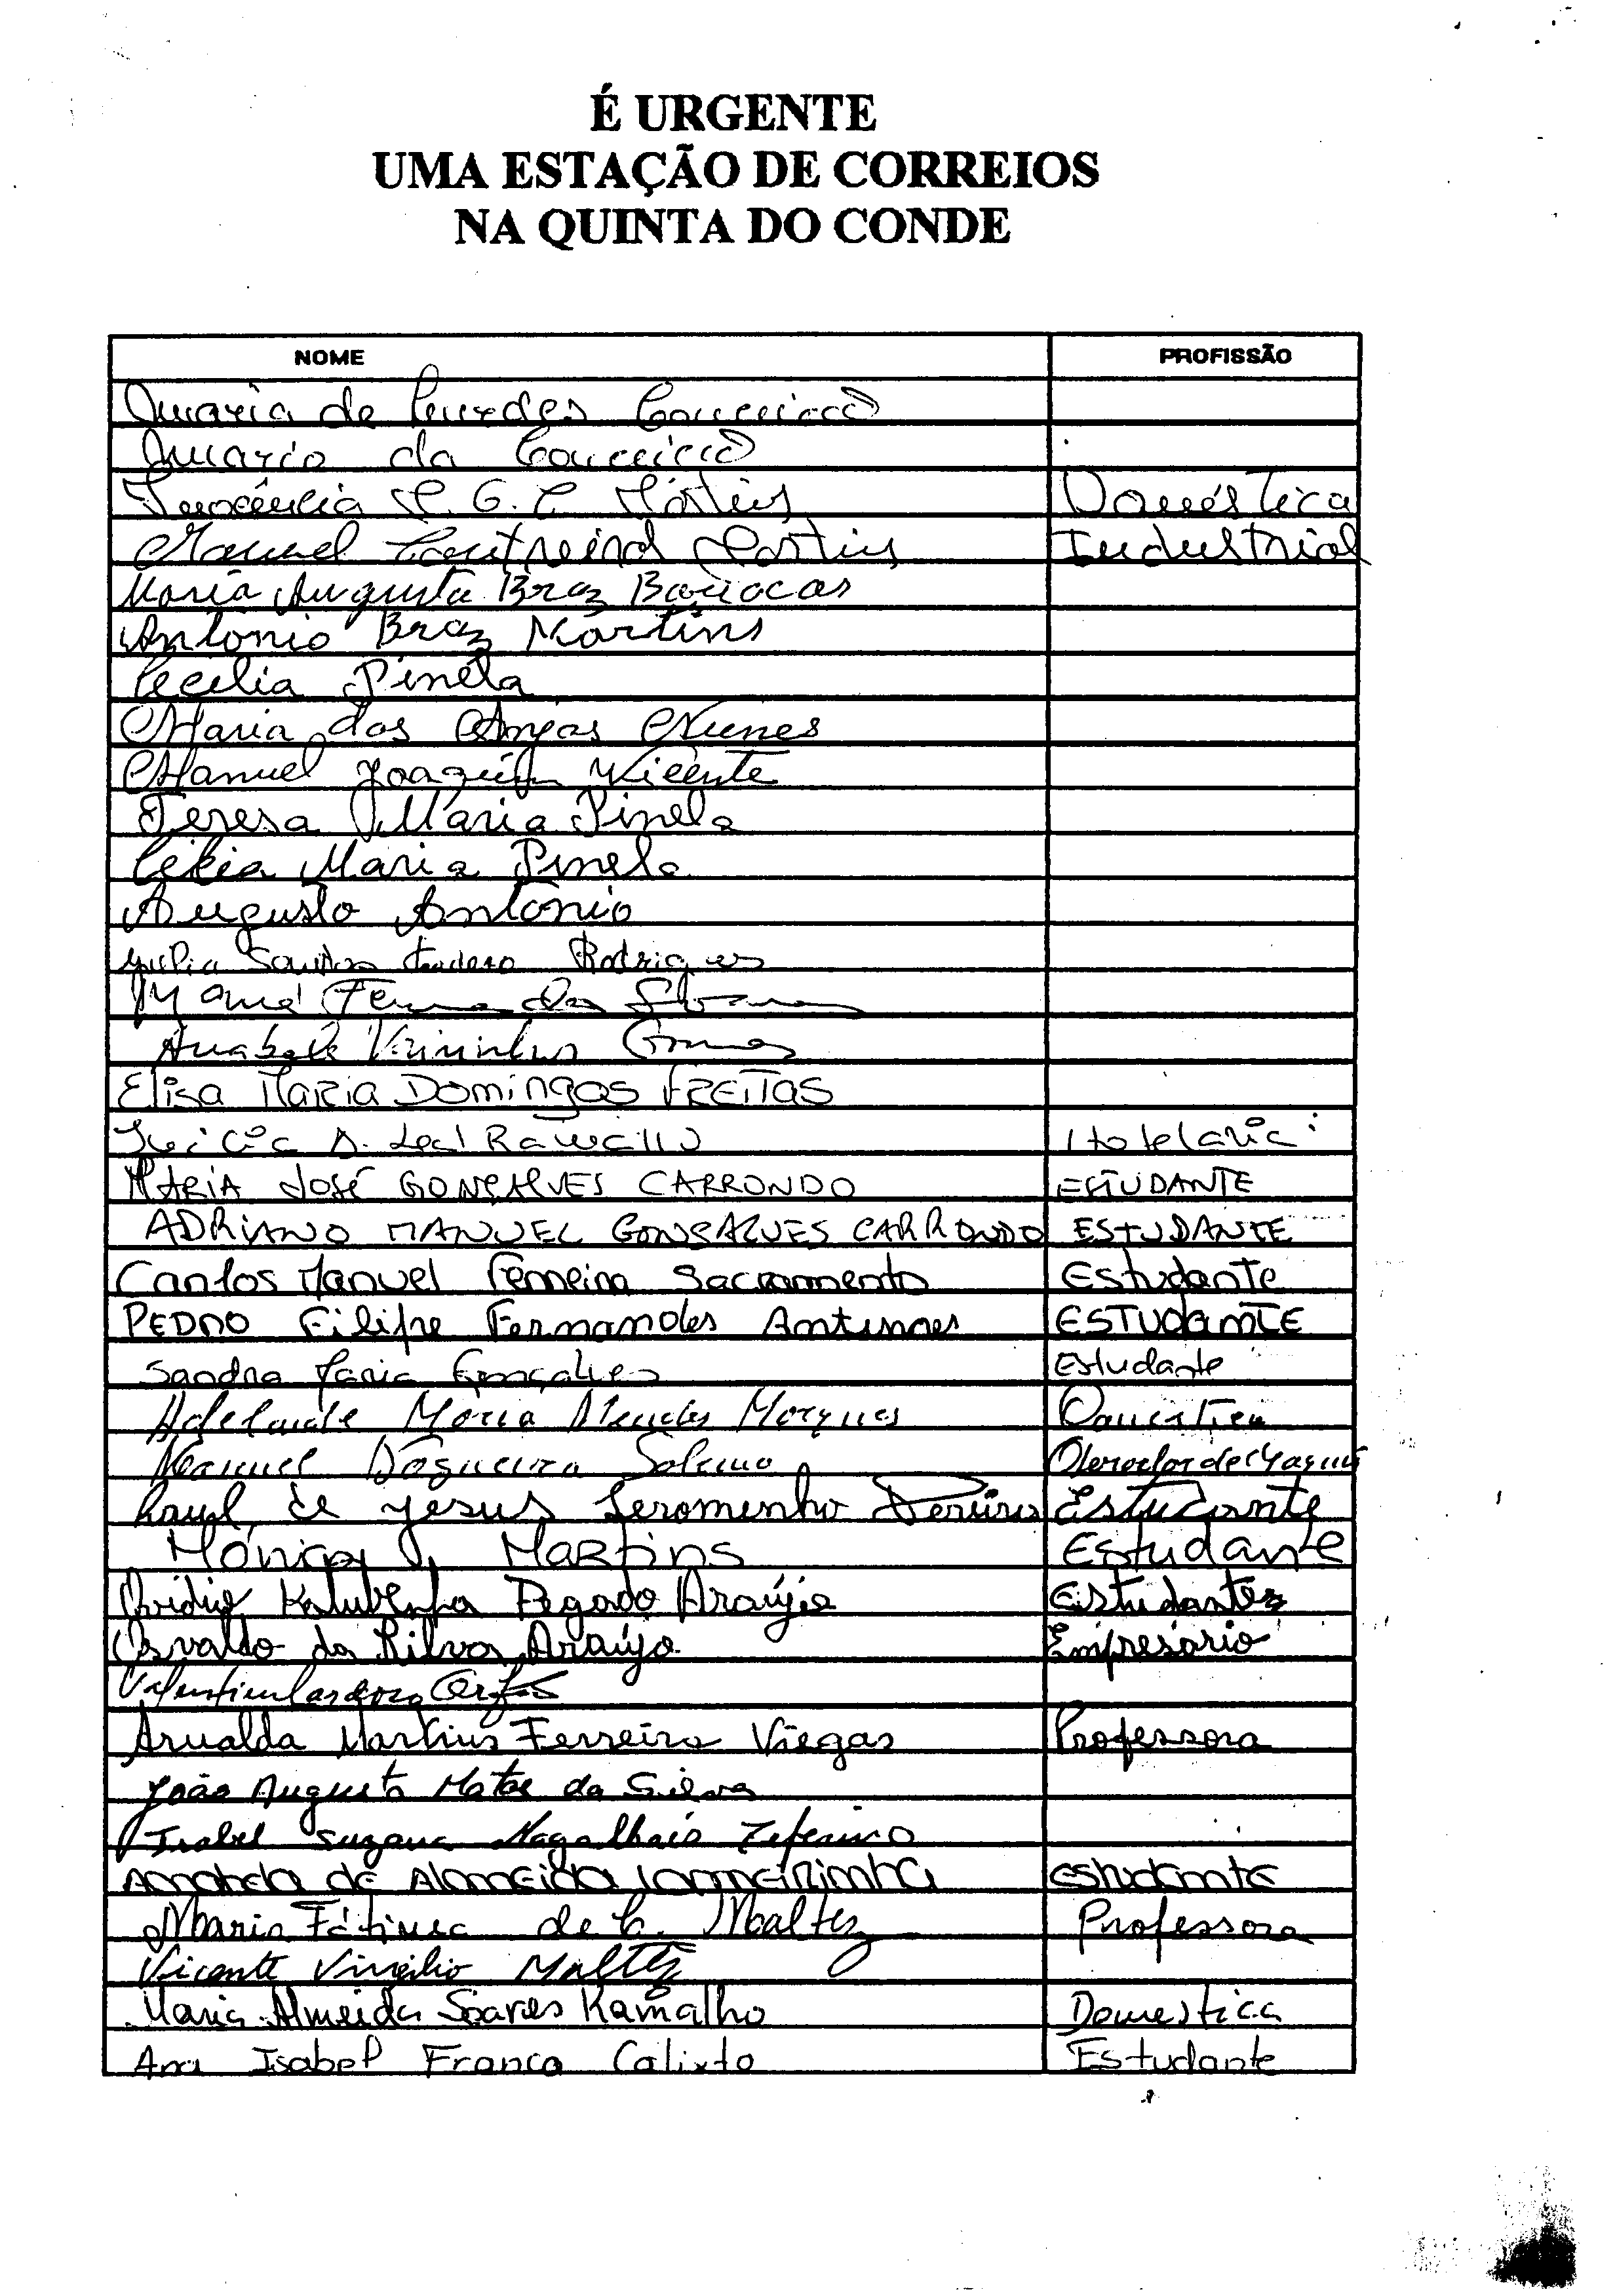 É URGENTE
UMA ESTAÇÃO DE CORREIOS
NA QUINTA DO CONDE
NOME PROFISSÃO
Maria de Lurdes Conceição
Maria da Conceição
Inocência P. G. C. Martins Doméstica
Manuel Martins Industrial
Maria Augusta Braz
António Braz Martins
Cecilia Pinela
Maria dos Anjos Nunes
Manuel Joaquim Vicente
Teresa Maria Pinela
Célia Maria Pinela
Augusto António
Santos Rodrigues
Maria Fernanda
Anabela Gomes
Elisa Maria Domingos FREITAS
D. Leal Ramalho Hotelaria
MARIA JOSÉ GONÇALVES CARRONDO ESTUDANTE
ADRIANO MANUEL GONÇALVES CARRONDO ESTUDANTE
Carlos Manuel Ferreira Sacramento Estudante
PEDRO Filipe Fernandes Antunes ESTUDANTE
Sandra Maria Gonçalves Estudante
Adelaide Maria Mendes Marques Domestica
Manuel Nogueira Operador de
Raul de Jesus Jerominho Pereira Estudante
Mónica J. Martins Estudante
Ovidio Pegado Araújo Estudante
Osvaldo da Silva Araújo Empresário
Arnalda Martins Ferreira Viegas Professora
João Augusto Matos da Silva
Isabel Suzana Magalhães Zeferino
de Almeida estudante
Maria Fátima de C. Maltez Professora
Vicente Virgilio Maltez
Maria Almeida Soares Ramalho Domestica
Ana Isabel Franco Calixto Estudante